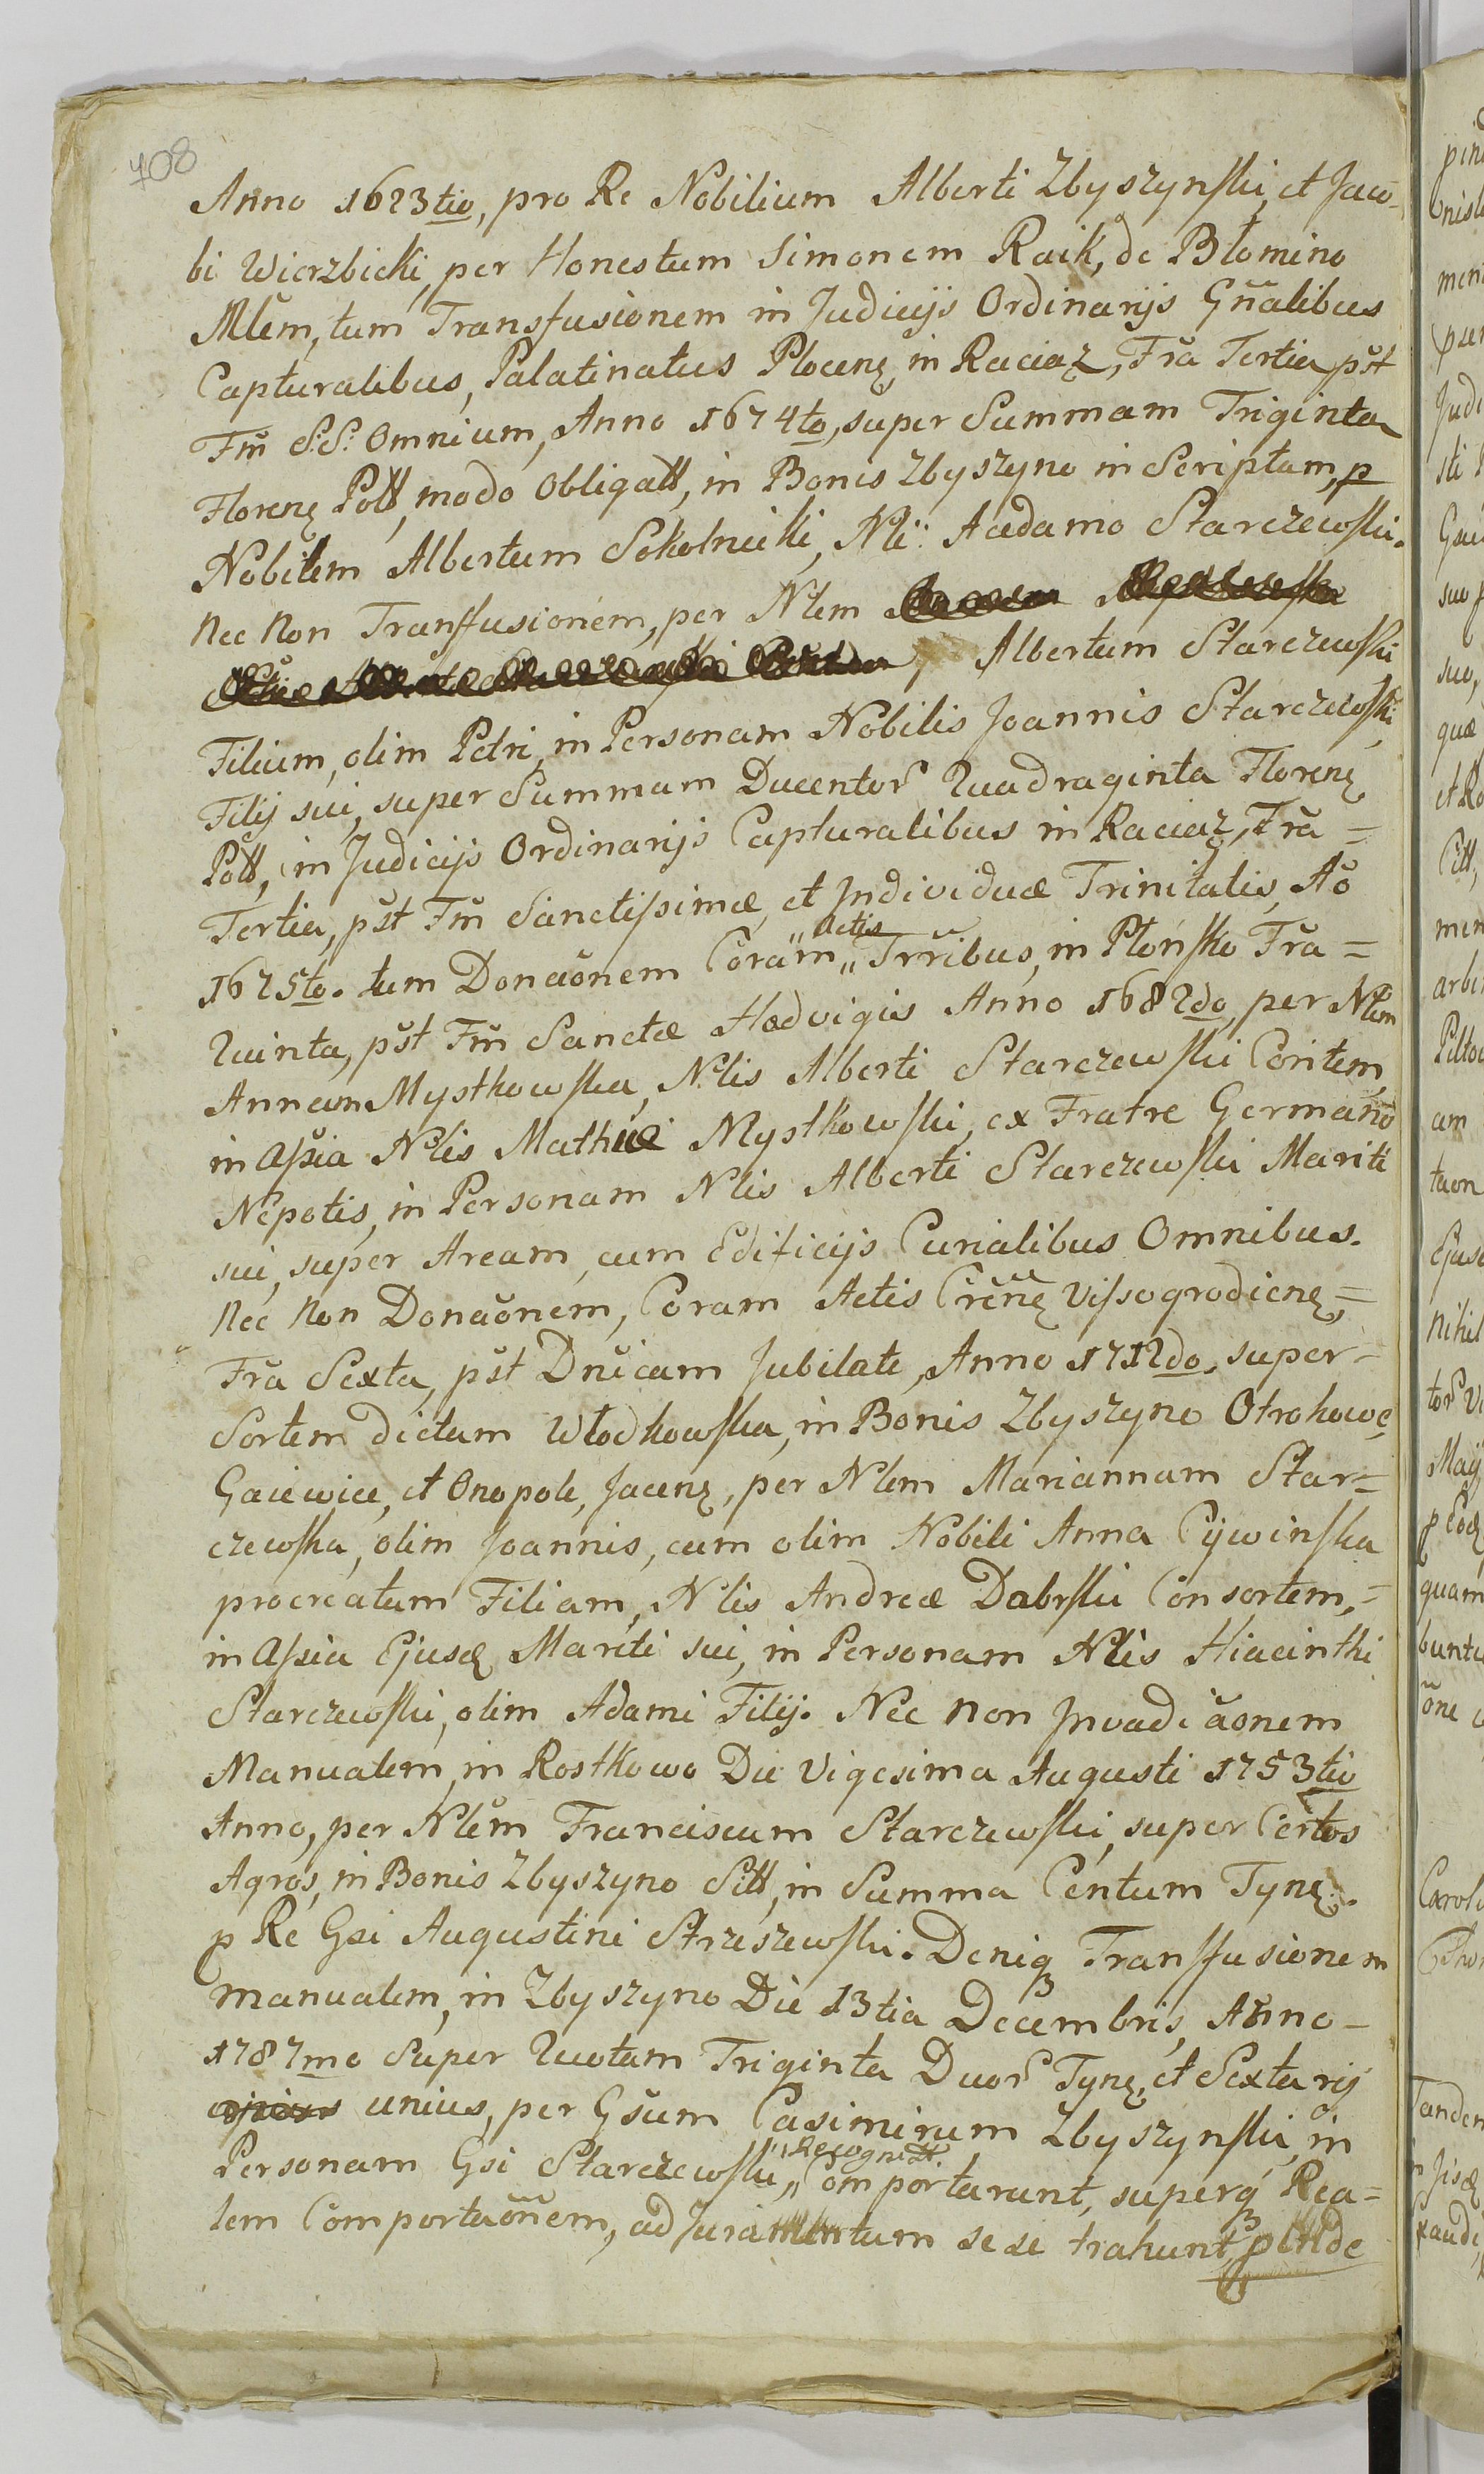 708
Anno 1673tio, pro Re Nobilium Alberti Zbyszynski, et Jaco-
bi Wierzbicki, per Honestum Simonem Raik, de Błomino
Mlem, tum Transfusionem in Judicijs Ordinarijs Gñalibus
Capturalibus, Palatinatus Plocenȩ, in Raciaz, Fra Tertia pst
Fm S:S: Omnium, Anno 1674to, super Summam Triginta
Florenȩ Poll, modo obligatt, in Bonis Zbyszyno in Scriptam, p
Nobilem Albertum Sokolnicki, Nli: Aadamo Starczewski.
Nec Non Transfusionem, per Nlem
Albertum Starczewski
Filium, olim Petri, in Personam Nobilis Joannis Starczewski,
Filij sui, super Summam Ducentor Quadraginta Florenȩ
Poll, in Judicijs Ordinarijs Capturalibus in Raciaz, Fra =
Tertia, pst Fm Sanctissimæ, et Individuæ Trinitatis, Ao
1675to. tum Donaonem Coram „Actis„ Trribus, in Płońsko Fra =
Quinta, pst Fm Sanctæ Hedvigis Anno 1682do, per Nlem
Annam Mystkowska, Nlis Alberti Starczewski Contem,
in Assia Nlis Mathiæ Mystkowski, ex Fratre Germano
Nepotis, in Personam Nlis Alberti Starczewski Mariti
sui, super Aream, cum Edificijs Curialibus Omnibus.
Nec Non Donaonem, Coram Actis Crenȩ Vissogrodienȩ, =
Fra Sexta, pst Dnicam Jubilate, Anno 1712do, super =
Sortem dictam Włodkowska, in Bonis Zbyszyno Otrokowȩ
Gaiewice, et Onopole, Jacenȩ, per Nlem Mariannam Star=
czewska, olim Joannis, cum olim Nobili Anna Cywinska
procreatam Filiam, Nlis Andreæ Dabrski Consortem, =
in Assia Ejusȩ Mariti sui, in Personam Nlis Hiacinthi
Starczewski, olim Adami Filij. Nec non Invadiaonem
Manualem, in Rostkowo Die Vigesima Augusti 1753tio
Anno, per Nlem Franciscum Starczewski, super Certos
Agros, in Bonis Zbyszyno Sitt, in Summa Centum Tynȩ.
p Re Gsi Augustini Strzeszewski. Deniq Transfusionem
manualem, in Zbyszyno Die 13tia Decembris, Anno -
1787mo Super Quotam Triginta Duor Tynȩ, et Sextarij
unius, per Gsum Casimirum Zbyszynski, in
Personam Gsi Starczewski, „Recognitt.„ Comportarunt, superq Rea=
lem Comportaonem, ad Juramentum se se trahunt, pinde